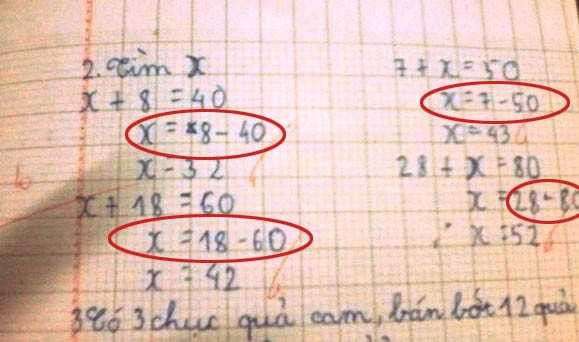 2. Tìm x
x + 8 = 40
x = 8 - 40
x - 32
x + 18 = 60
x = 18 - 60
x = 42
7 + x = 50
x = 7 - 50
x = 43
28 + x = 80
x = 28 - 80
x = 52
3 Có 3 chục quả cam, bán bớt 12 quả